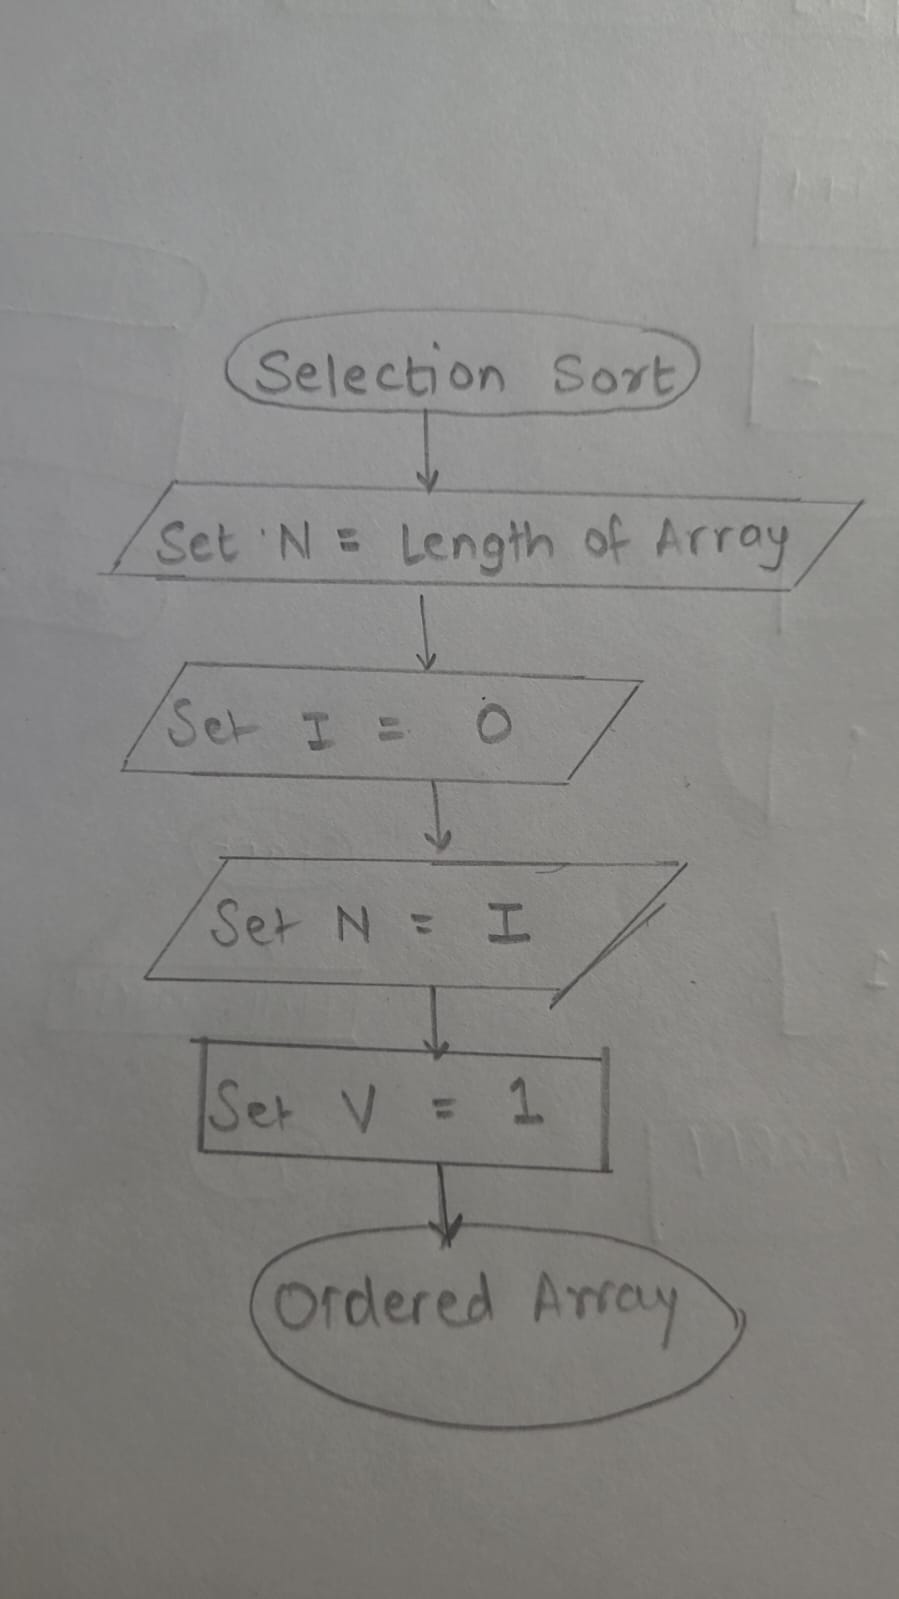 Selection Sort
Set N = Length of Array
Set I = 0
Set N = I
Set V = 1
Ordered Array